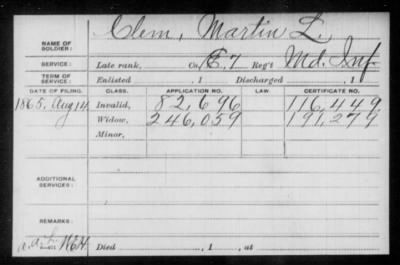 Clem, Martin L.
NAME OF SOLDIER:
SERVICE: Late rank, Co. E. 7 Reg't Md. Inf
TERM OF SERVICE: Enlisted , 1 Discharged , 1
DATE OF FILING. CLASS. APPLICATION NO. LAW. CERTIFICATE NO.
1865, Aug 14 Invalid, 82,696 116,449
Widow, 246,059 191,279
Minor,
ADDITIONAL SERVICES:
REMARKS:
Died , 1 , at